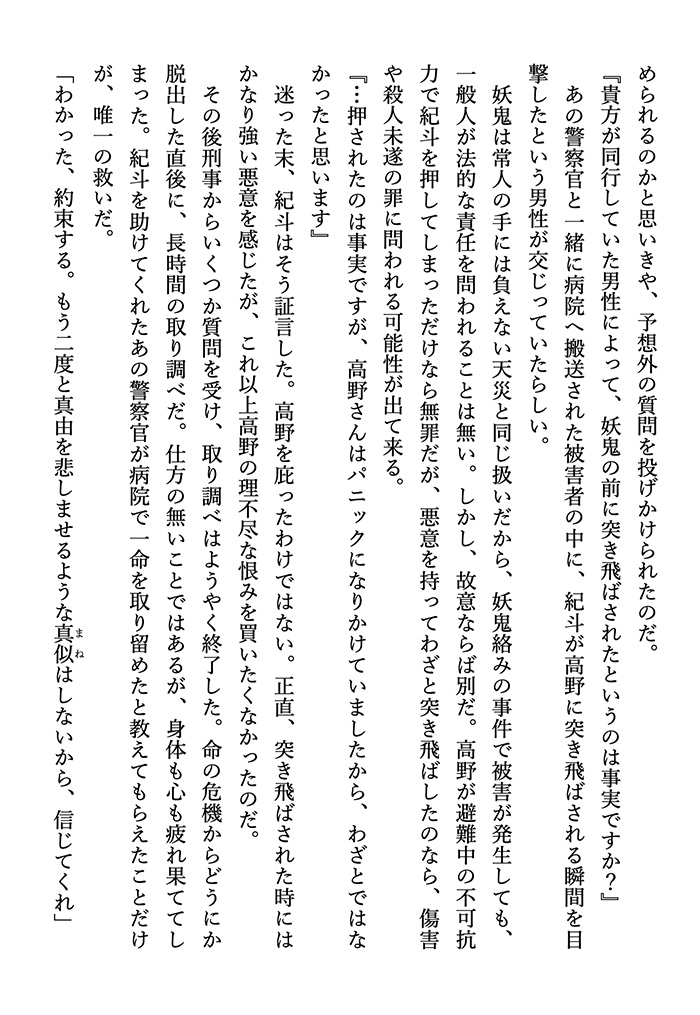 められるのかと思いきや、予想外の質問を投げかけられたのだ。
『貴方が同行していた男性によって、妖鬼の前に突き飛ばされたというのは事実ですか？』
あの警察官と一緒に病院へ搬送された被害者の中に、紀斗が高野に突き飛ばされる瞬間を目
撃したという男性が交じっていたらしい。
妖鬼は常人の手には負えない天災と同じ扱いだから、妖鬼絡みの事件で被害が発生しても、
一般人が法的な責任を問われることは無い。しかし、故意ならば別だ。高野が避難中の不可抗
力で紀斗を押してしまっただけなら無罪だが、悪意を持ってわざと突き飛ばしたのなら、傷害
や殺人未遂の罪に問われる可能性が出て来る。
『…押されたのは事実ですが、高野さんはパニックになりかけていましたから、わざとではな
かったと思います』
迷った末、紀斗はそう証言した。高野を庇ったわけではない。正直、突き飛ばされた時には
かなり強い悪意を感じたが、これ以上高野の理不尽な恨みを買いたくなかったのだ。
その後刑事からいくつか質問を受け、取り調べはようやく終了した。命の危機からどうにか
脱出した直後に、長時間の取り調べだ。仕方の無いことではあるが、身体も心も疲れ果ててし
まった。紀斗を助けてくれたあの警察官が病院で一命を取り留めたと教えてもらえたことだけ
が、唯一の救いだ。
「わかった、約束する。もう二度と真由を悲しませるような真似はしないから、信じてくれ」
まね